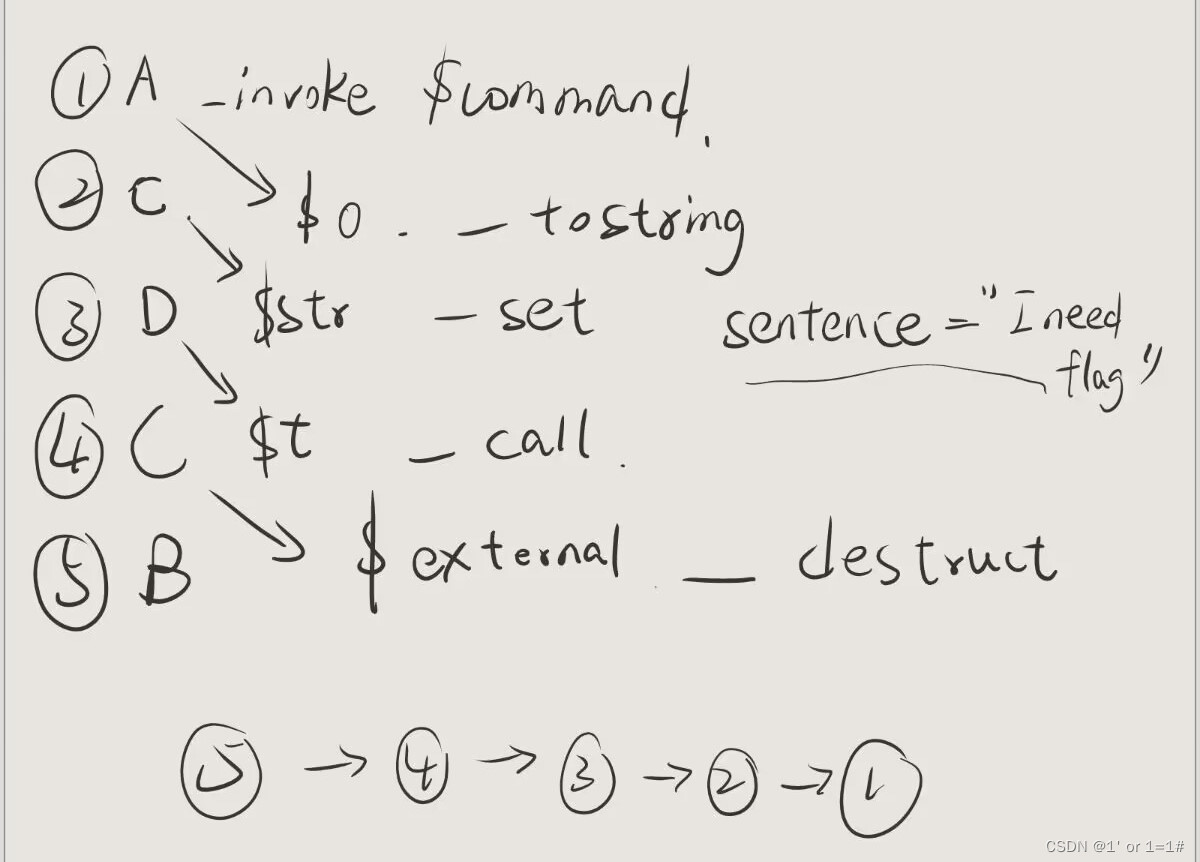 ① A _invoke $command.
② C. $0. _tostring
③ D $str _set
sentence = "I need
flag"
④ C $t _call.
⑤ B $external __destruct
⑤ → ④ → ③ → ② → ①
CSDN @1' or 1=1#